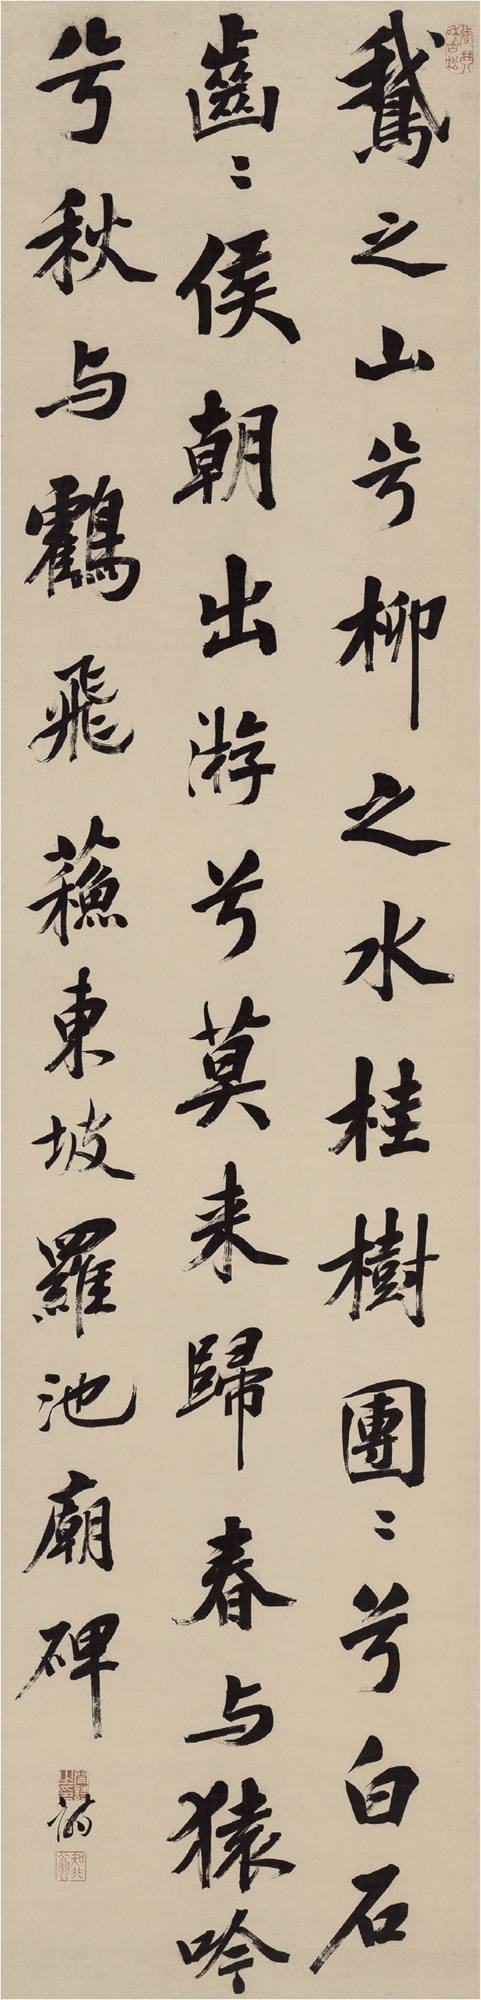 鵞之山兮柳之水桂樹團〻兮白石
齒〻侯朝出游兮莫来歸春与猿吟
兮秋与鸖飛蘓東坡羅池廟碑